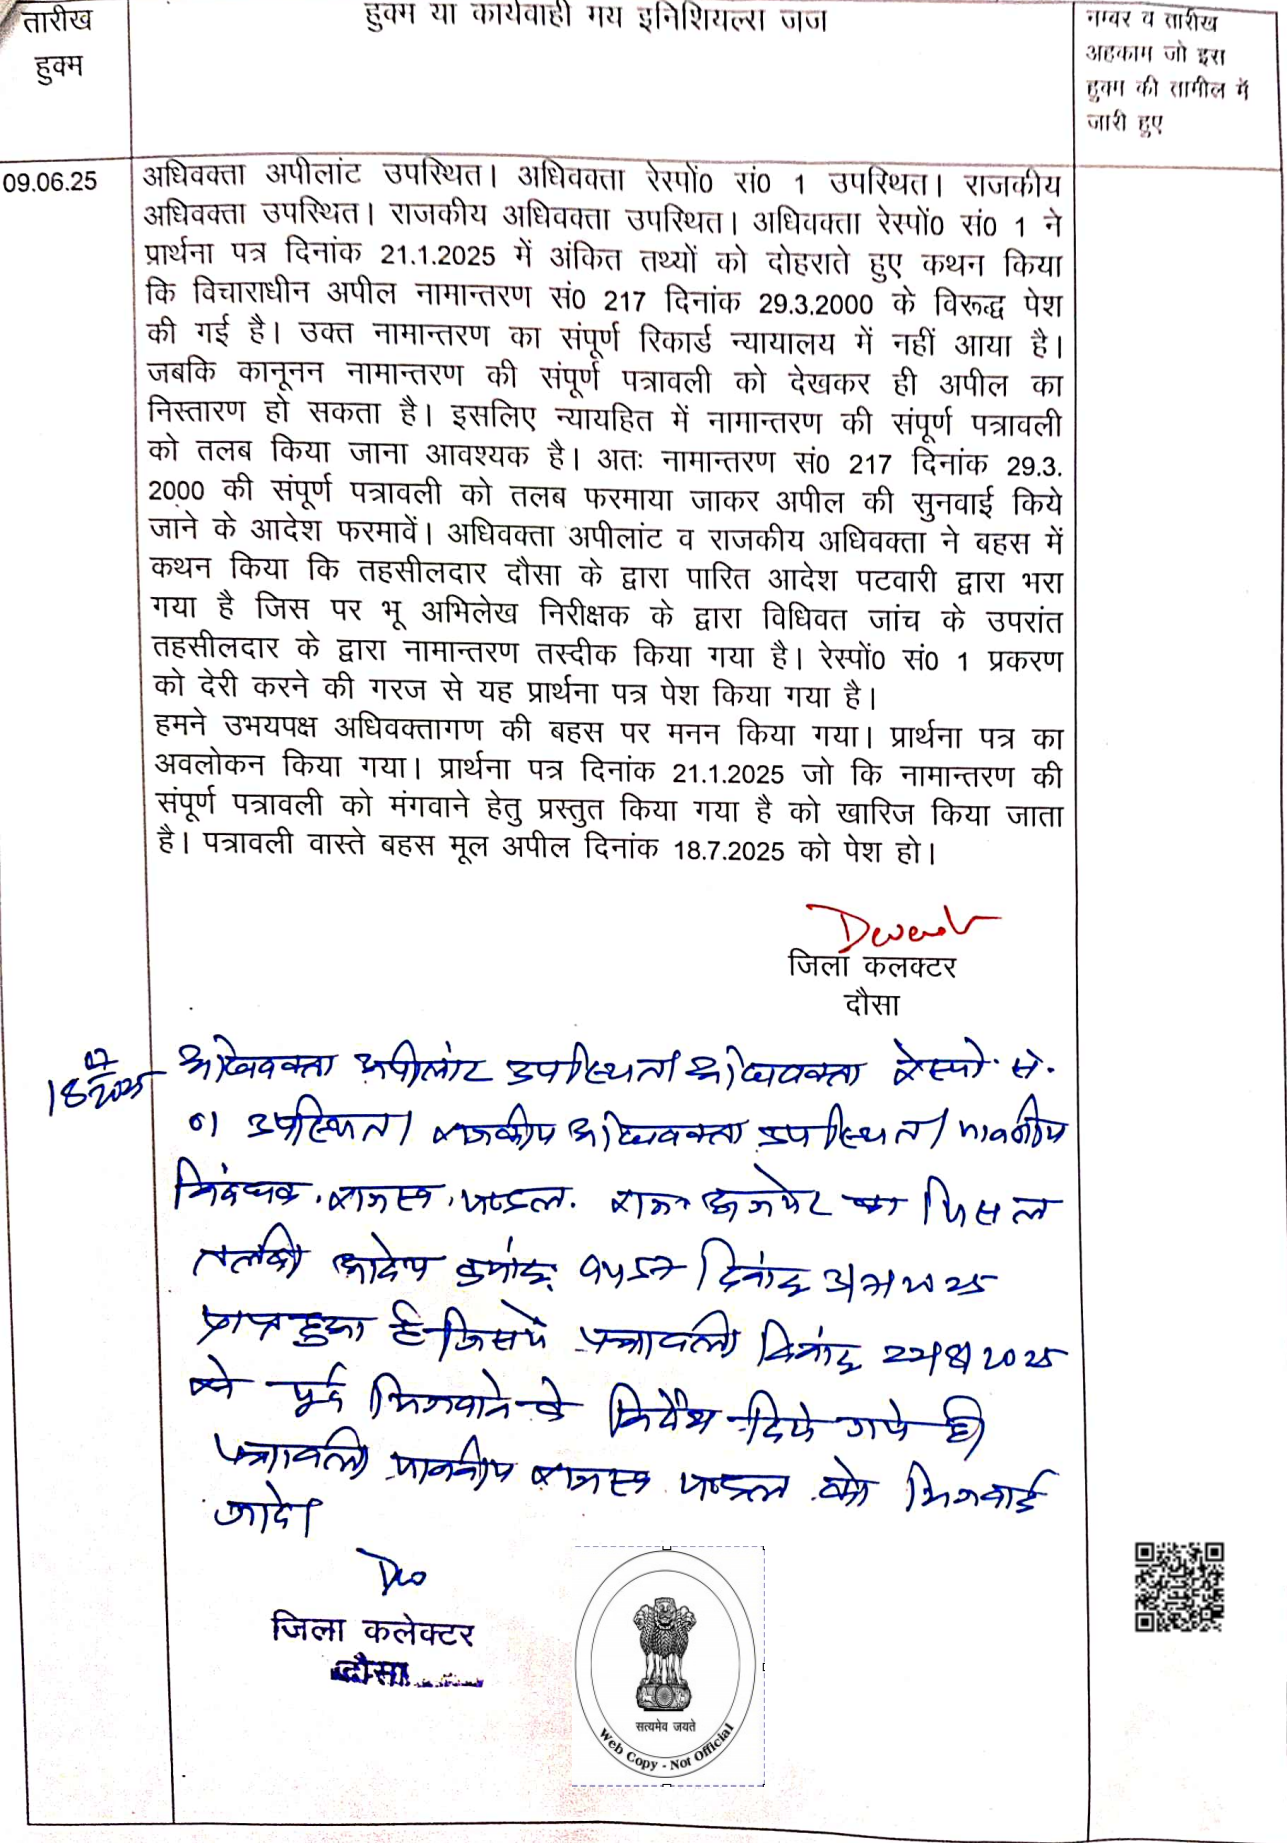 तारीख
हुक्म
हुक्म या कार्यवाही मय इनिशियल्स जज
नम्बर व तारीख
अहकाम जो इस
हुक्म की तामील में
जारी हुए
09.06.25
अधिवक्ता अपीलांट उपस्थित। अधिवक्ता रेस्पों0 सं0 1 उपस्थित। राजकीय
अधिवक्ता उपस्थित। राजकीय अधिवक्ता उपस्थित। अधिवक्ता रेस्पों0 सं0 1 ने
प्रार्थना पत्र दिनांक 21.1.2025 में अंकित तथ्यों को दोहराते हुए कथन किया
कि विचाराधीन अपील नामान्तरण सं0 217 दिनांक 29.3.2000 के विरूद्ध पेश
की गई है। उक्त नामान्तरण का संपूर्ण रिकार्ड न्यायालय में नहीं आया है।
जबकि कानूनन नामान्तरण की संपूर्ण पत्रावली को देखकर ही अपील का
निस्तारण हो सकता है। इसलिए न्यायहित में नामान्तरण की संपूर्ण पत्रावली
को तलब किया जाना आवश्यक है। अतः नामान्तरण सं0 217 दिनांक 29.3.
2000 की संपूर्ण पत्रावली को तलब फरमाया जाकर अपील की सुनवाई किये
जाने के आदेश फरमावें। अधिवक्ता अपीलांट व राजकीय अधिवक्ता ने बहस में
कथन किया कि तहसीलदार दौसा के द्वारा पारित आदेश पटवारी द्वारा भरा
गया है जिस पर भू अभिलेख निरीक्षक के द्वारा विधिवत जांच के उपरांत
तहसीलदार के द्वारा नामान्तरण तस्दीक किया गया है। रेस्पों0 सं0 1 प्रकरण
को देरी करने की गरज से यह प्रार्थना पत्र पेश किया गया है।
हमने उभयपक्ष अधिवक्तागण की बहस पर मनन किया गया। प्रार्थना पत्र का
अवलोकन किया गया। प्रार्थना पत्र दिनांक 21.1.2025 जो कि नामान्तरण की
संपूर्ण पत्रावली को मंगवाने हेतु प्रस्तुत किया गया है को खारिज किया जाता
है। पत्रावली वास्ते बहस मूल अपील दिनांक 18.7.2025 को पेश हो।
जिला कलक्टर
दौसा
अधिवक्ता अपीलांट उपस्थित। अधिवक्ता रेस्पो. सं.
01 उपस्थित। राजकीय अधिवक्ता उपस्थित। माननीय
निबंधक, राजस्व मण्डल, राज. अजमेर का मिसल
तलबी आदेश क्रमांक दिनांक
प्राप्त हुआ है जिसमें पत्रावली दिनांक 22/8/2025
से पूर्व भिजवाने के निर्देश दिये गये है।
पत्रावली माननीय राजस्व मण्डल को भिजवाई
जावे।
जिला कलेक्टर
दौसा
सत्यमेव जयते
Web Copy - Not Official